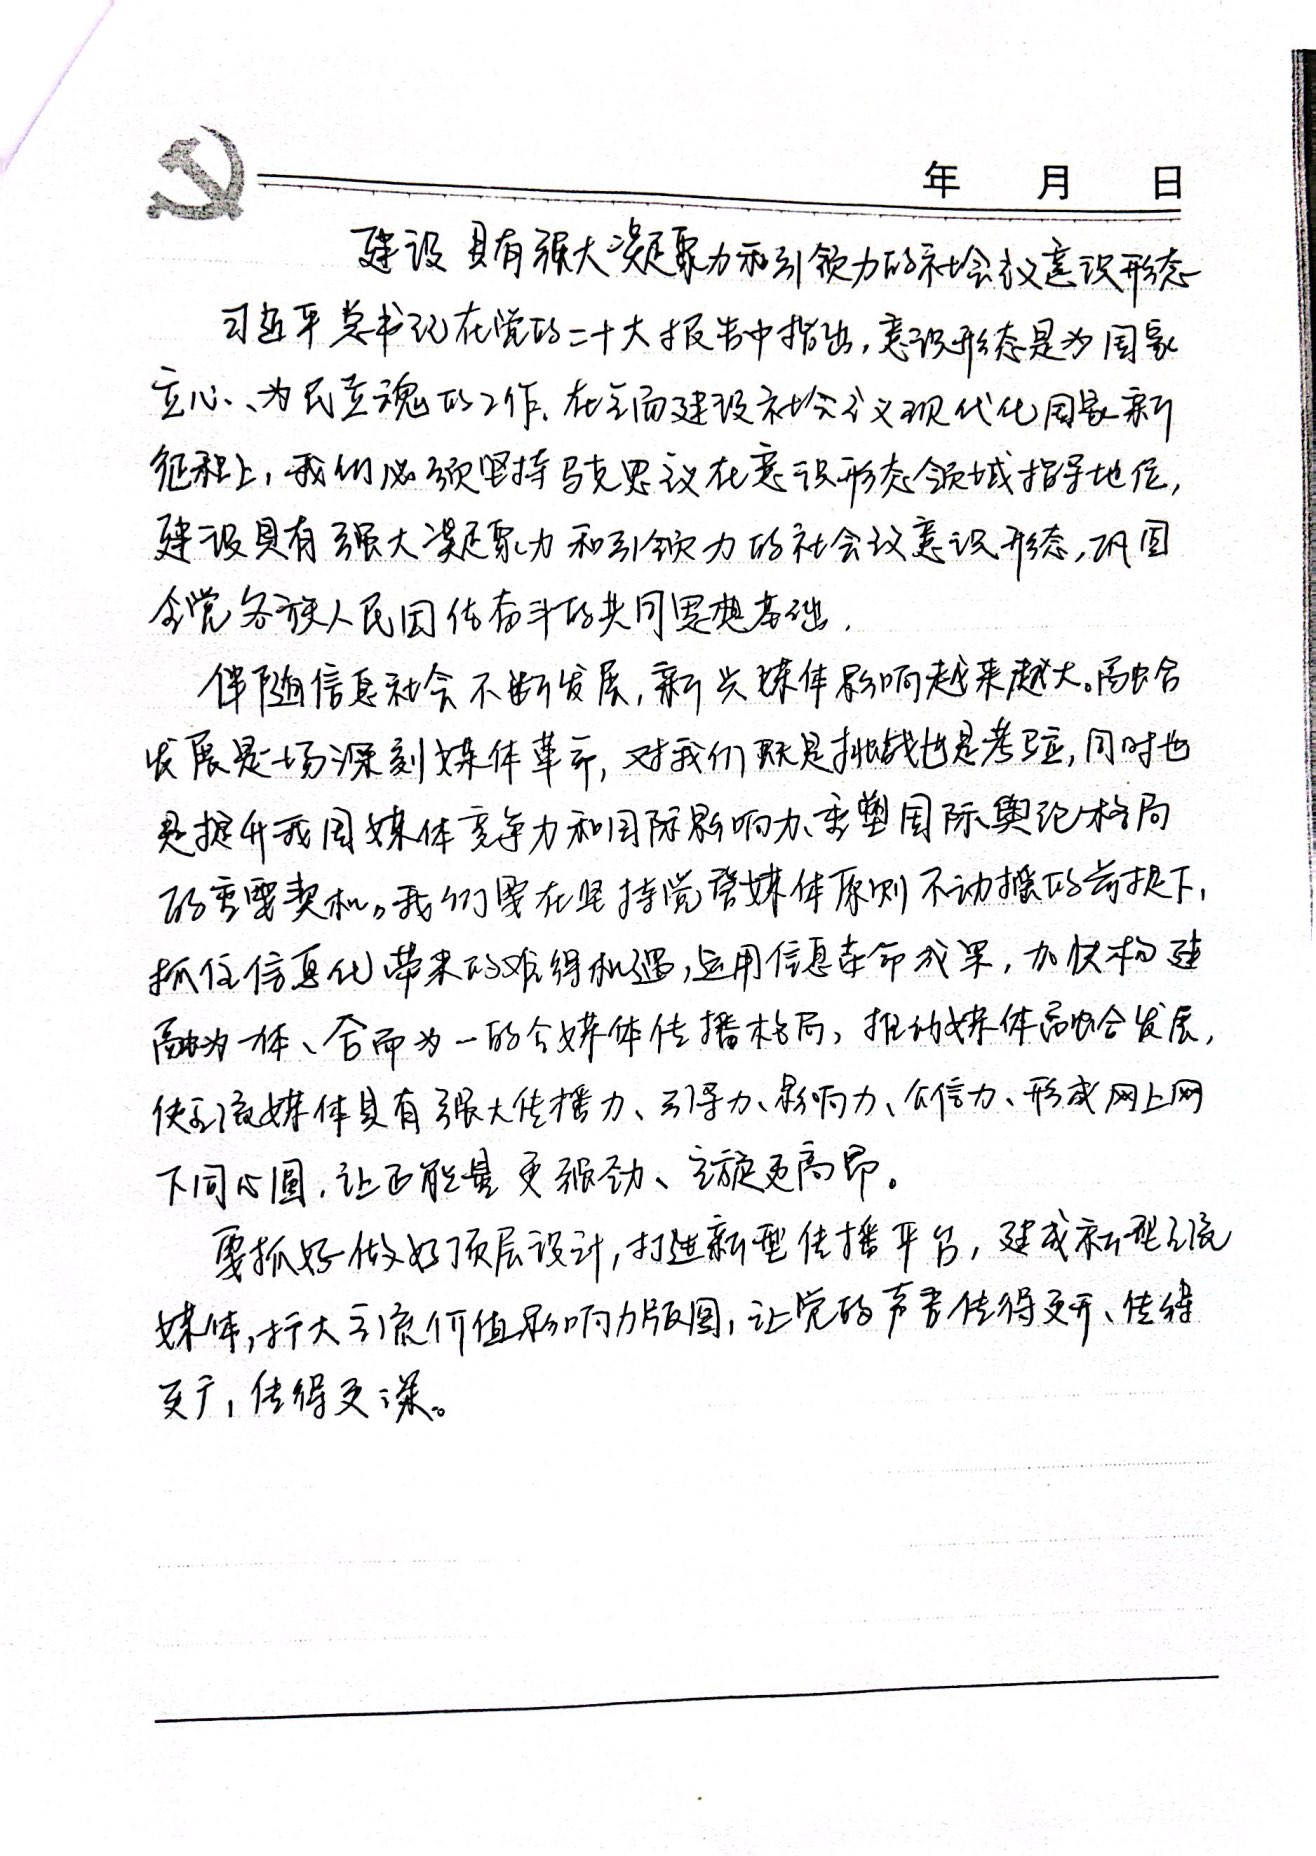 年 月 日
建设具有强大凝聚力和引领力的社会议意识形态
习近平总书记在党的二十大报告中指出，意识形态是为国家
立心、为民立魂的工作。在全面建设社会主义现代化国家新
征程上，我们必须坚持马克思议在意识形态领域指导地位，
建设具有强大凝聚力和引领力的社会议意识形态，巩固
全党各族人民团结奋斗的共同思想基础。
伴随信息社会不断发展，新兴媒体影响越来越大。融合
发展是一场深刻媒体革命，对我们既是挑战也是考验，同时也
是提升我国媒体竞争力和国际影响力、重塑国际舆论格局
的重要契机。我们要在坚持党管媒体原则不动摇的前提下，
抓住信息化带来的难得机遇，运用信息革命成果，加快构建
融为一体、合而为一的全媒体传播格局，推动媒体融合发展，
使主流媒体具有强大传播力、引导力、影响力、公信力、形成网上网
下同心圆，让正能量更强劲、主旋更高昂。
要抓好做好顶层设计，打造新型传播平台，建成新型主流
媒体，扩大主流价值影响力版图，让党的声音传得更开、传得
更广，传得更深。